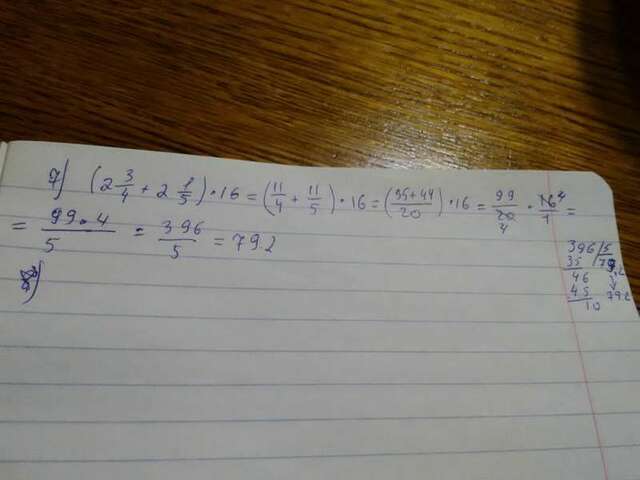 7) (2 3/4 + 2 1/5) · 16 = (11/4 + 11/5) · 16 = (55+44/20) · 16 = 99/20 · 16/1 =
= 99·4/5 = 396/5 = 79.2
8)
396 | 5
35 | 79.2
46
45 79.2
10